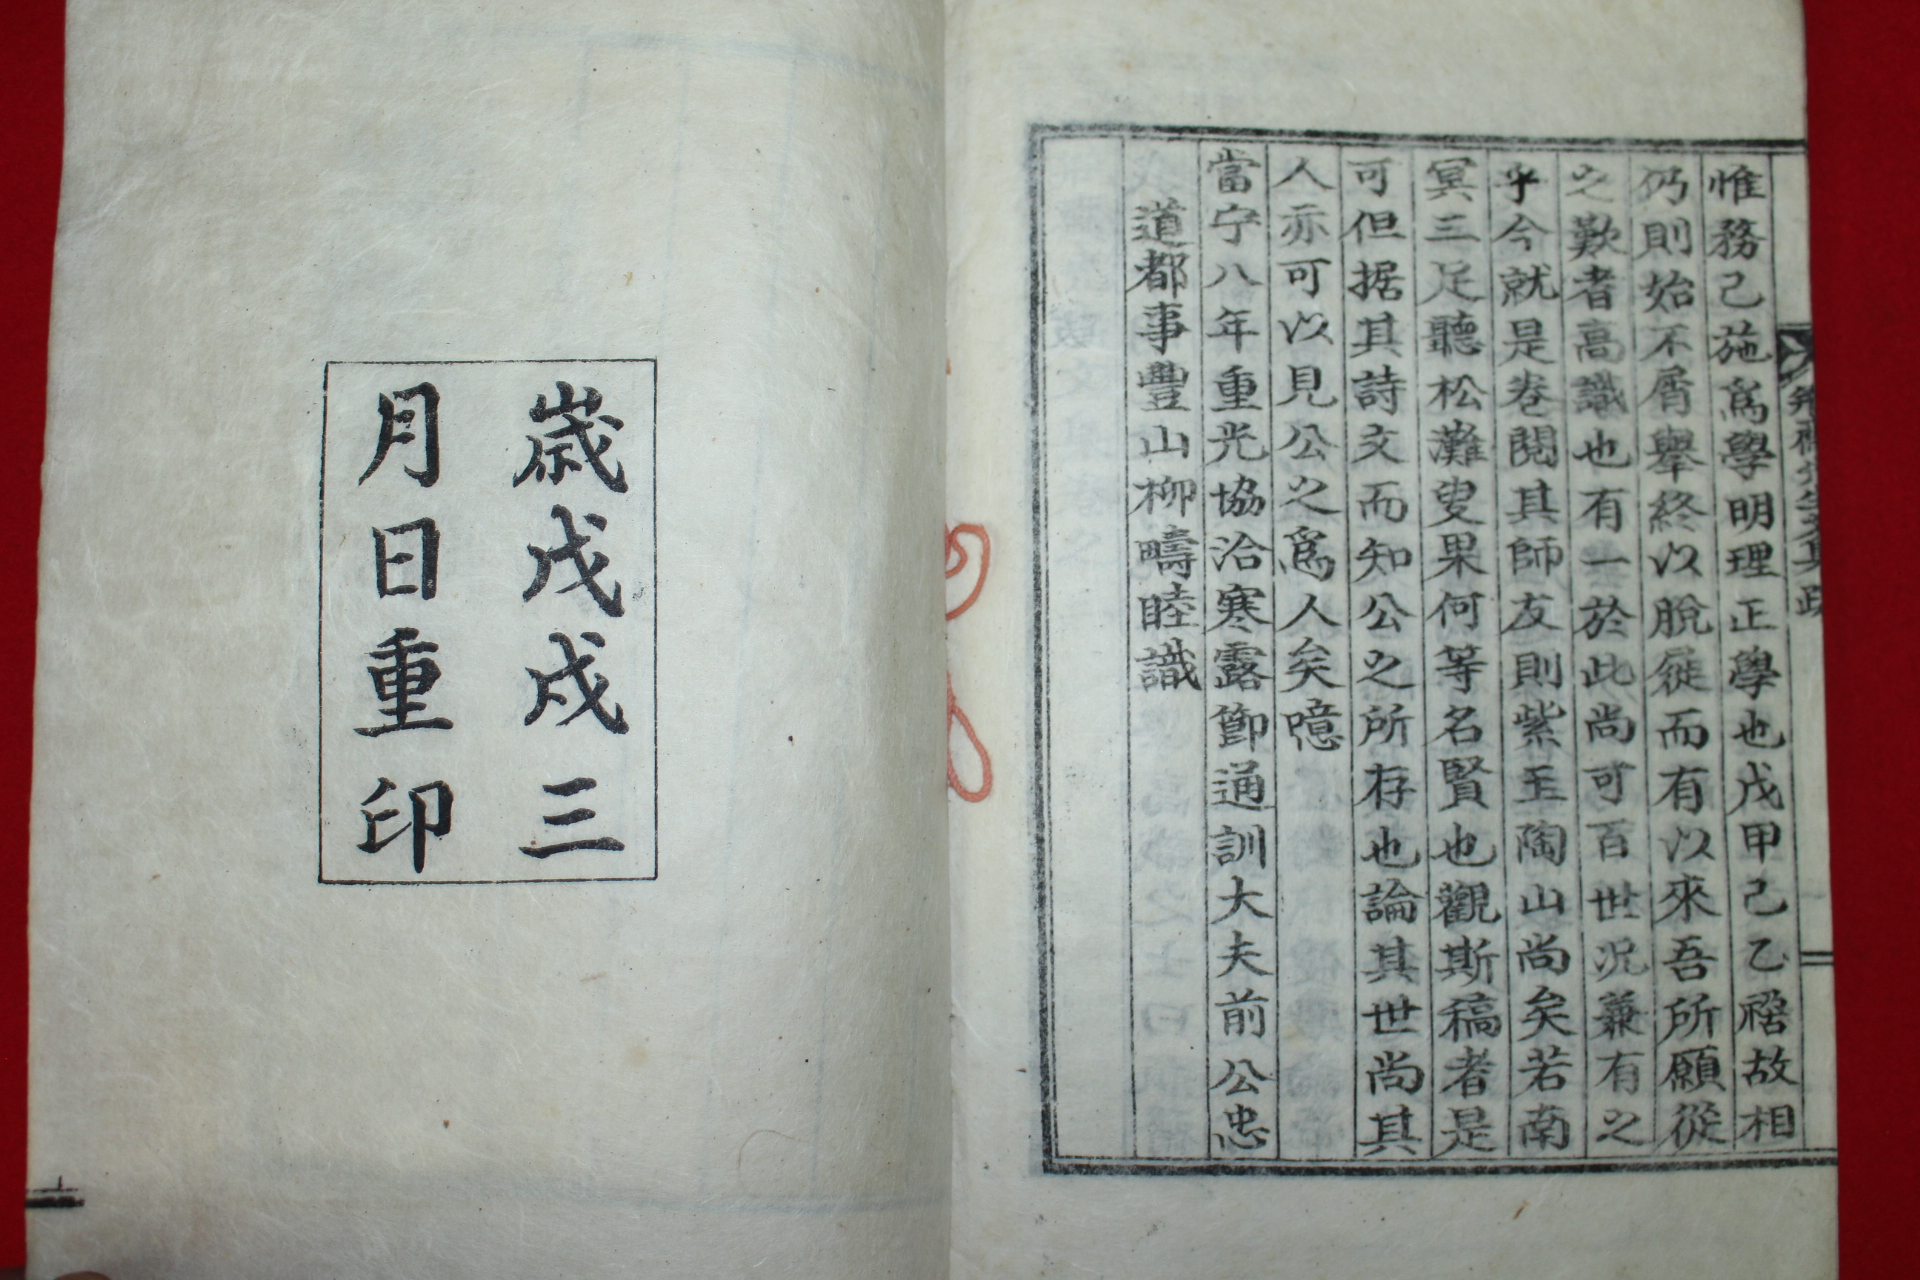 惟務己施爲學明理正學也戊甲己乙禍故相
仍則始不屑舉終以脫蹝而有以來吾所願從
之歎者高識也有一於此尚可百世况兼有之
乎今就是卷閱其師友則紫玉陶山尚矣若南
冥三足聽松灘叟果何等名賢也觀斯稿者是
可但据其詩文而知公之所存也論其世尚其
人亦可以見公之爲人矣噫
當宁八年重光協洽寒露節通訓大夫前公忠
道都事豐山柳疇睦識
歲戊戌三
月日重印